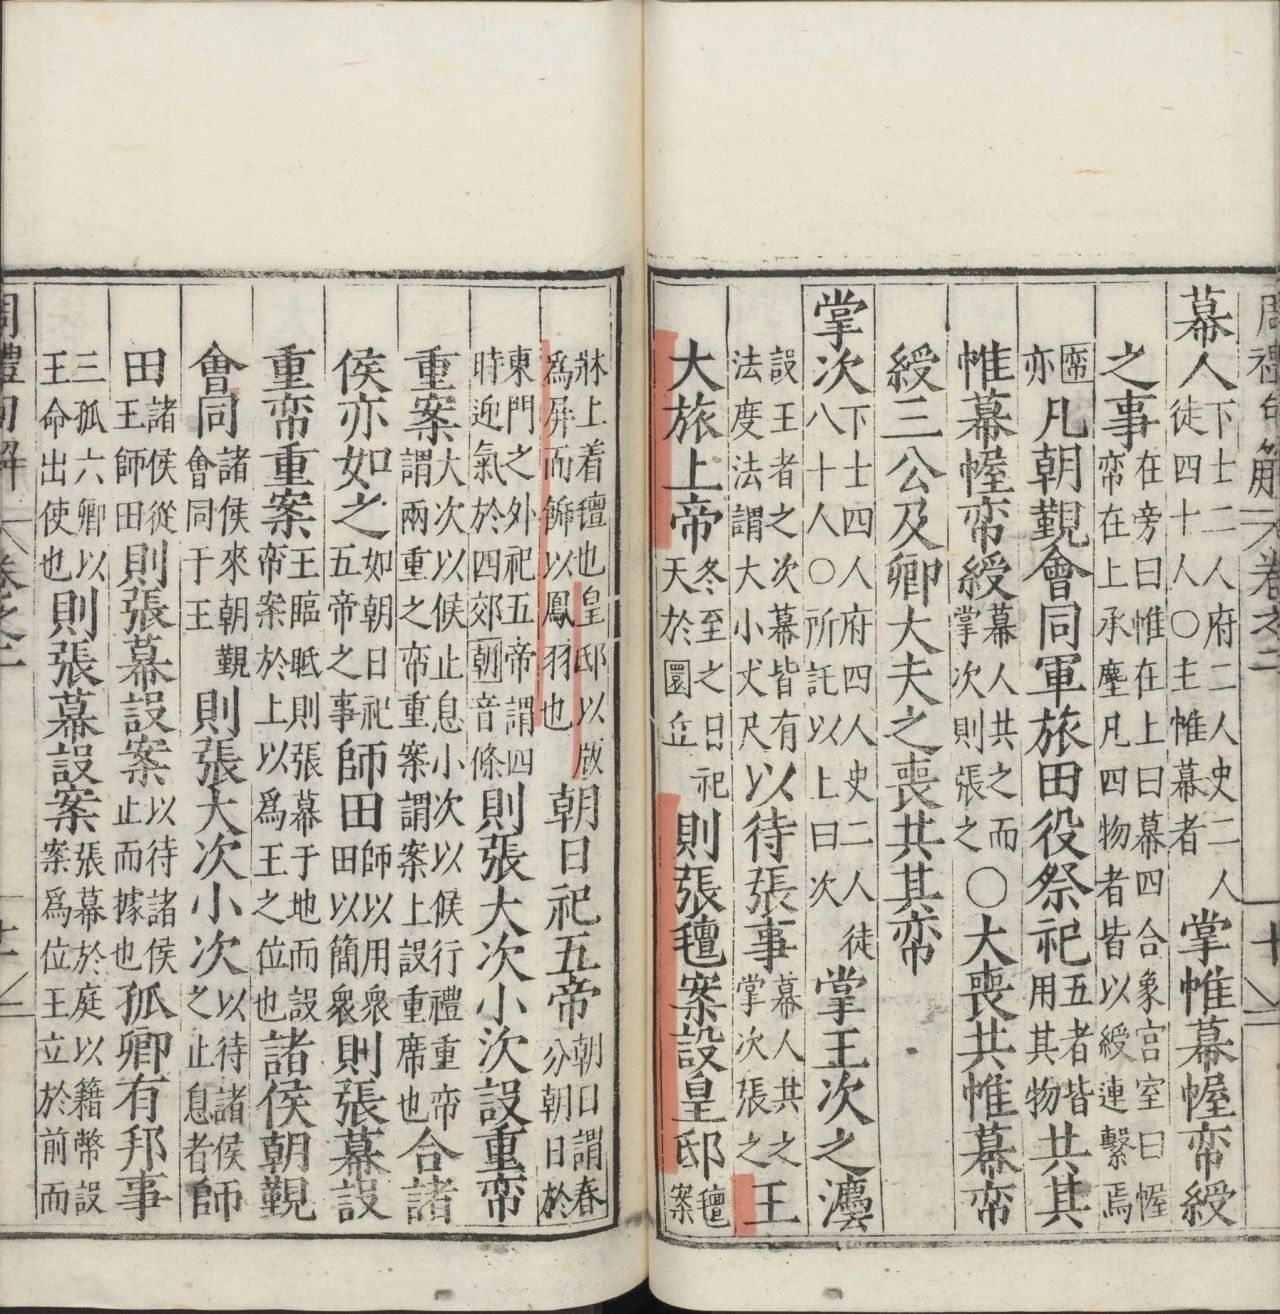 周禮句解 卷之二 十
幕人下士二人府二人史二人徒四十人○主帷幕者掌帷幕幄帟綬
之事在旁曰帷在上曰幕四合象宮室曰幄帟在上承塵凡四物者皆以綬連繫焉
帟亦凡朝覲會同軍旅田役祭祀五者皆用其物共其
帷幕幄帟綬幕人共之而掌次則張之○大喪共帷幕帟
綬三公及卿大夫之喪共其帟
掌次下士四人府四人史二人徒八十人○所託以上曰次掌王次之灋
設王者之次幕皆有法度法謂大小丈尺以待張事幕人共之掌次張之王
大旅上帝冬至之日祀天於圜丘則張氊案設皇邸氊案
牀上着氊也皇邸以版為屏而餙以鳳羽也朝日祀五帝朝日謂春分朝日於
東門之外祀五帝謂四時迎氣於四郊朝音條則張大次小次設重帟
重案大次以候止息小次以候行禮重帟謂兩重之帟重案謂案上設重席也合諸
侯亦如之如朝日祀五帝之事師田師以用衆田以簡衆則張幕設
重帟重案王臨眡則張幕于地而設帝案於上以為王之位也諸侯朝覲
會同諸侯來朝覲會同于王則張大次小次以待諸侯之止息者師
田諸侯從王師田則張幕設案以待諸侯止而據也孤卿有邦事
三孤六卿以王命出使也則張幕設案張幕於庭以籍幣設案為位王立於前而
周禮句解 卷之二 十一